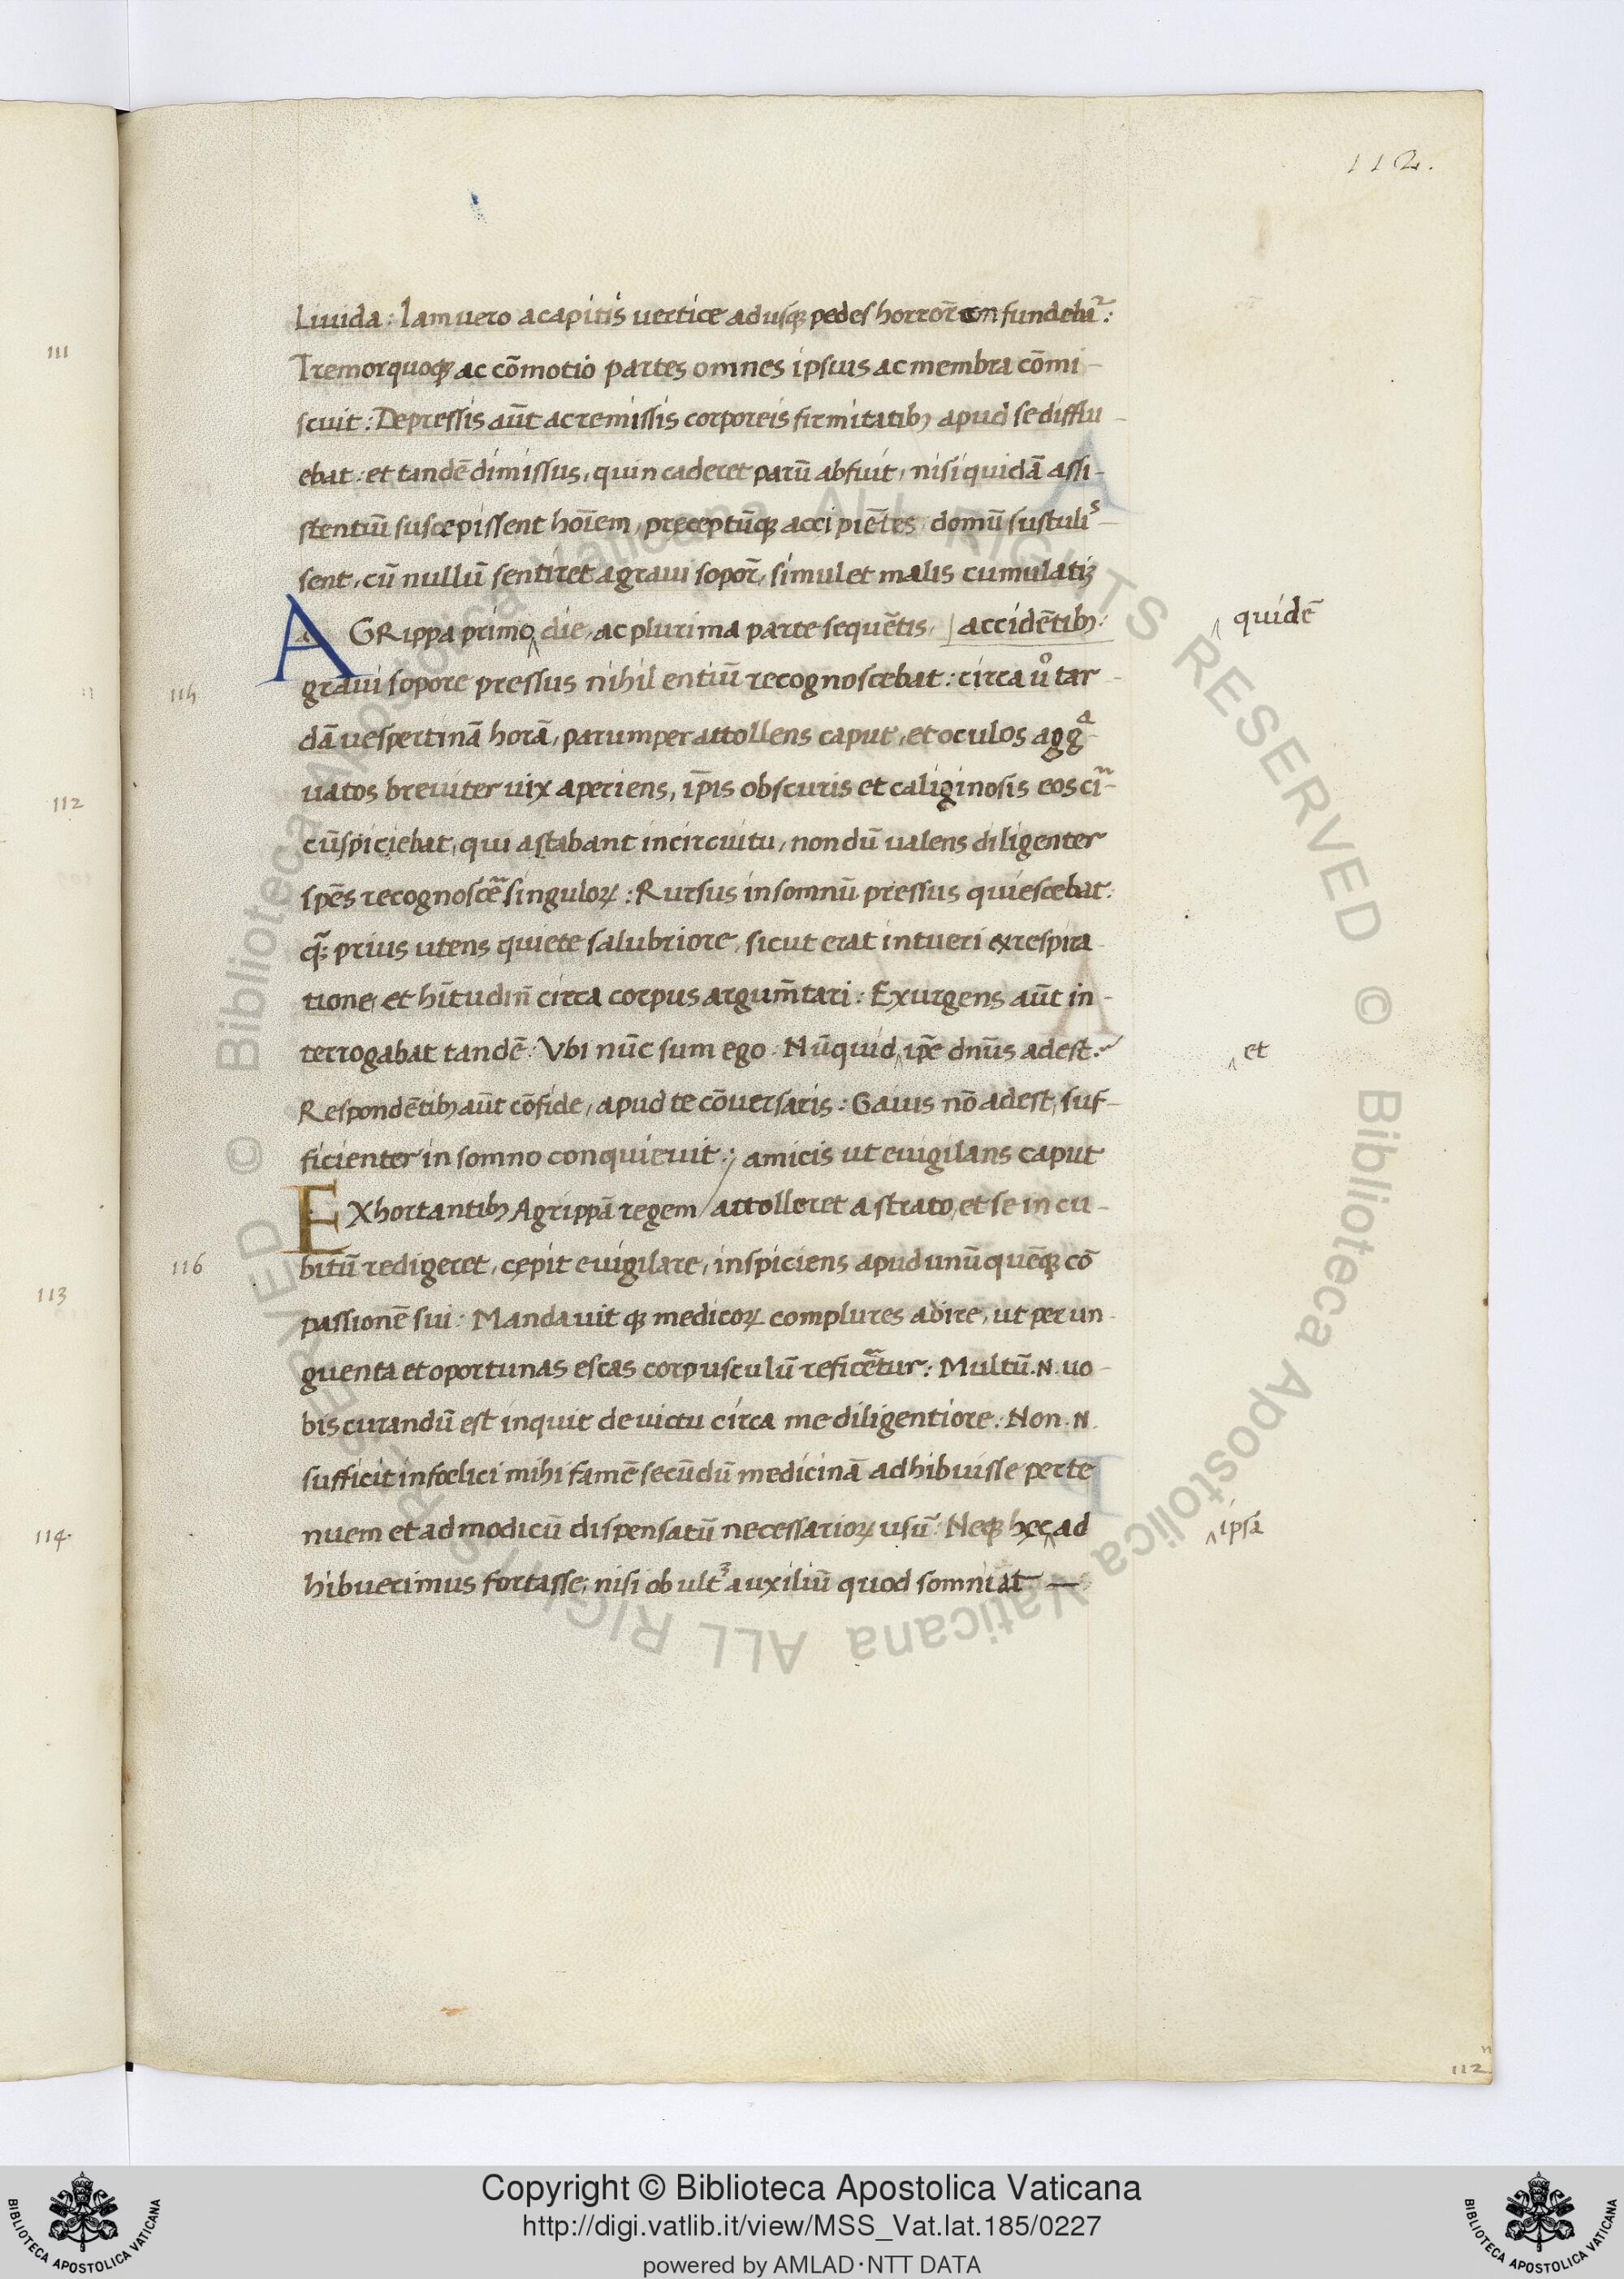 112.
Liuida: Iam uero a capitis uertice adusq; pedes horror̄ confundebat̄:
Tremor quoq; ac cōmotio partes omnes ipsius ac membra cōmi-
scuit: Depressis aūt ac remissis corporeis firmitatib; apud se difflu-
ebat: et tandē dimissus, quin caderet parū abfuit, nisi quidā assi-
stentiū suscepissent hoīem, pręceptūq; accipiētes domū sustulis-
sent, cū nullū sentiret a graui sopor̄, simul et malis cumulatiꝫ
AGRippa primo ‸ die, ac plurima parte sequētis, | accidētib;:
quidē
graui sopore pressus nihil entiū recognoscebat: circa u͛o tar-
dā uespertinā horā, parumper attollens caput, et oculos aggᵃ-
uatos breuiter uix aperiens, ip̄is obscuris et caliginosis eos cir-
cūspiciebat, qui astabant in circuitu, nondū ualens diligenter
spēs recognoscēʳ singuloꝝ: Rursus in somnū pressus quiescebat:
115
q; prius utens quiete salubriore, sicut erat intueri ex respira-
tione, et hītudin̄ circa corpus argum̄tari: Exurgens aūt in-
terrogabat tandē: Vbi nūc sum ego. Nūquid ‸ ip̄e dn̄us adest.
et
Respondētib; aūt cōfide, apud te cōuersaris: Gaius nō adest, suf-
ficienter in somno conquieuit:; amicis ut euigilans caput
EXhortantib; Agrippā regem / attolleret a strato, et se in cu-
bitū redigeret, cępit euigilare, inspiciens apud unūquēq; cō
116
passionē sui: Mandauit q; medicoꝝ complures adire, ut per un-
guenta et oportunas escas corpusculū reficētur: Multū .N. uo-
bis curandū est inquit de uictu circa me diligentiore: Non .N.
sufficit infoelici mihi famē secūdū medicinā adhibuisse per te
nuem et ad modicū dispensatū necessarioꝝ usū: Neq; hęc ‸ ad
ipsā
hibuerimus fortasse, nisi ob ult̄ auxiliū quod somniat —
111
112
113
114
112
© Biblioteca Apostolica Vaticana ALL RIGHTS RESERVED © Biblioteca Apostolica Vaticana ALL RIGHTS RESERVED
Copyright © Biblioteca Apostolica Vaticana
http://digi.vatlib.it/view/MSS_Vat.lat.185/0227
powered by AMLAD·NTT DATA
BIBLIOTECA APOSTOLICA VATICANA
BIBLIOTECA APOSTOLICA VATICANA